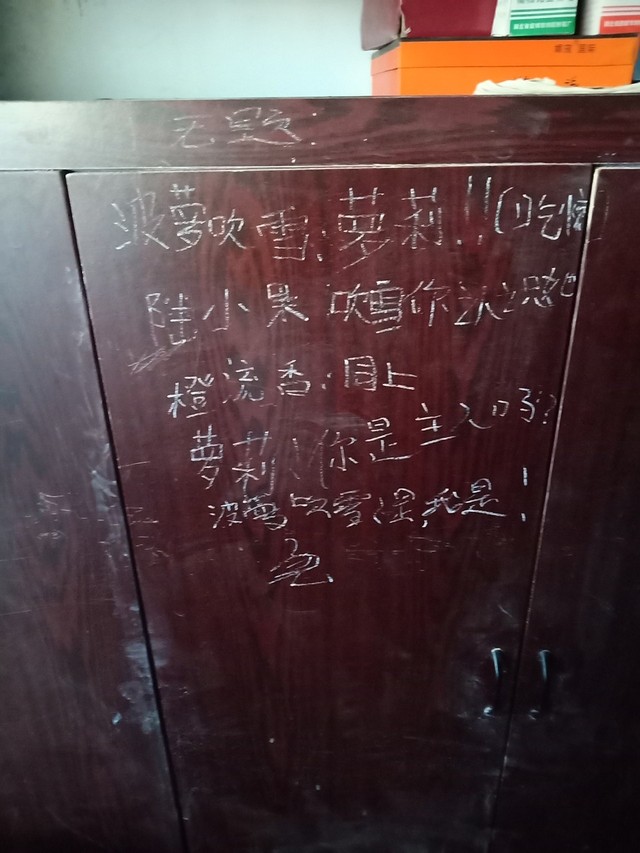 波萝吹雪:萝莉!!(吃惊)
陆小果 吹雪你认识她
橙流香:同上
萝莉!你是主人吗?
波萝吹雪:是,我是!